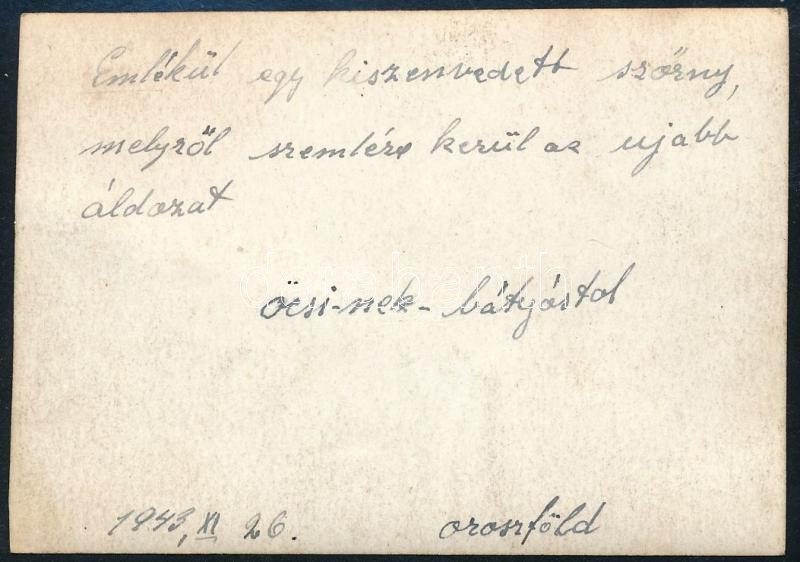 Emlékül egy kiszenvedett szőrny,
melyről szemlére kerül az ujabb
áldozat
öcsi-nek- bátyóstol
1943, XI 26.
oroszföld